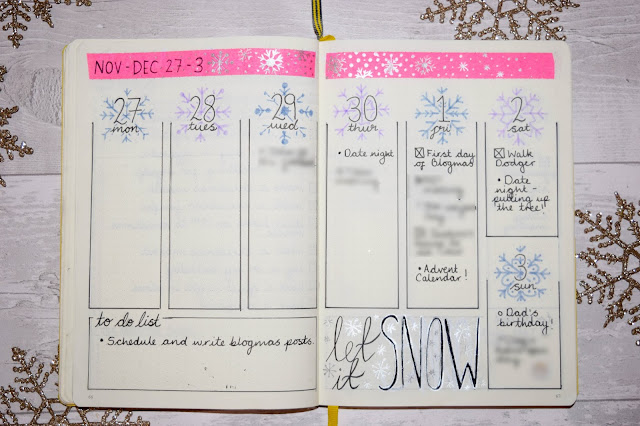 NOV-DEC 27-3
27
mon
28
tues
29
wed
30
thur
• Date night
1
fri
☒ First day
of Blogmas
• Advent
Calendar!
2
sat
☒ Walk
Dodger
• Date
night -
putting up
the tree!!
3
sun
o Dad's
birthday!
to do list
• Schedule and write blogmas posts.
let
it
SNOW